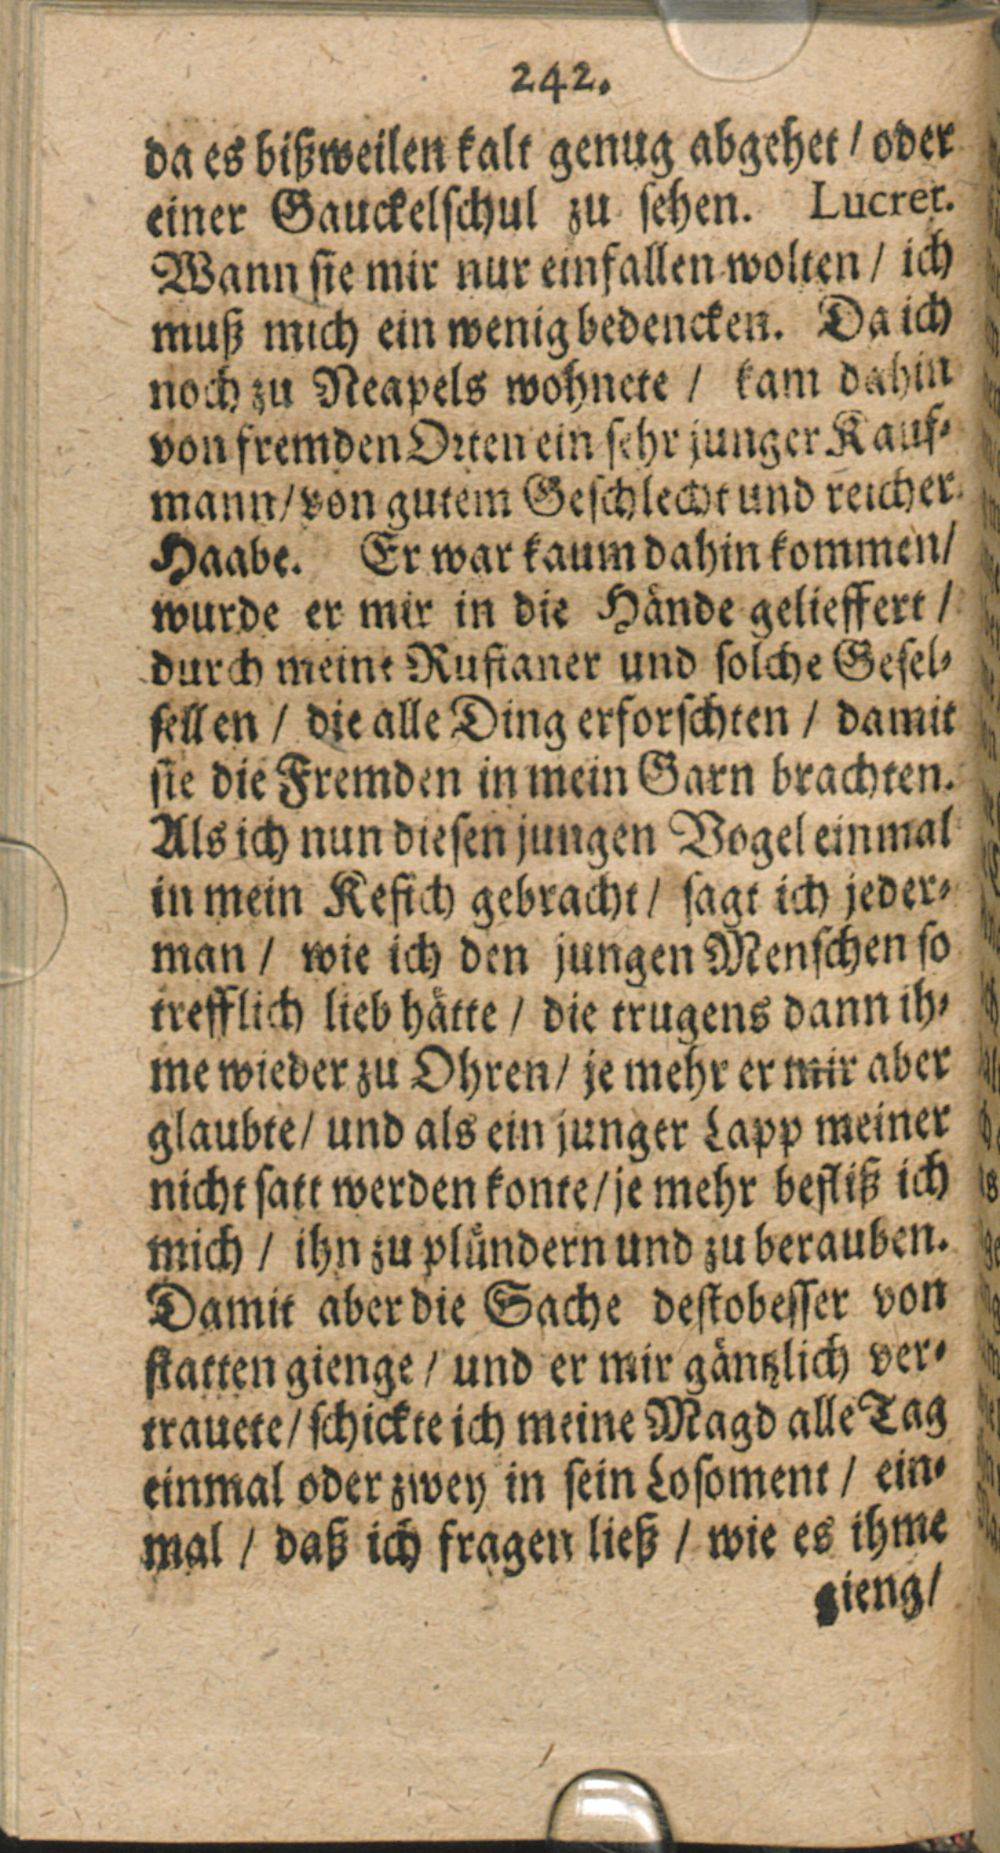 242.
da es bißweilen kalt genug abgehet / oder
einer Gauckelschul zu sehen. Lucret.
Wann sie mir nur einfallen wolten / ich
muß mich ein wenig bedencken. Da ich
noch zu Neapels wohnete / kam dahin
von fremden Orten ein sehr junger Kauf-
mann / von gutem Geschlecht und reicher
Haabe. Er war kaum dahin kommen /
wurde er mir in die Hände gelieffert /
durch meine Rufianer und solche Gesel-
sellen / die alle Ding erforschten / damit
sie die Fremden in mein Garn brachten.
Als ich nun diesen jungen Vogel einmal
in mein Kefich gebracht / sagt ich jeder-
man / wie ich den jungen Menschen so
trefflich lieb hätte / die trugens dann ih-
me wieder zu Ohren / je mehr er mir aber
glaubte / und als ein junger Lapp meiner
nicht satt werden konte / je mehr befliß ich
mich / ihn zu plündern und zu berauben.
Damit aber die Sache destobesser von
statten gienge / und er mir gäntzlich ver-
trauete / schickte ich meine Magd alle Tag
einmal oder zwey in sein Losoment / ein-
mal / daß ich fragen ließ / wie es ihme
gieng /